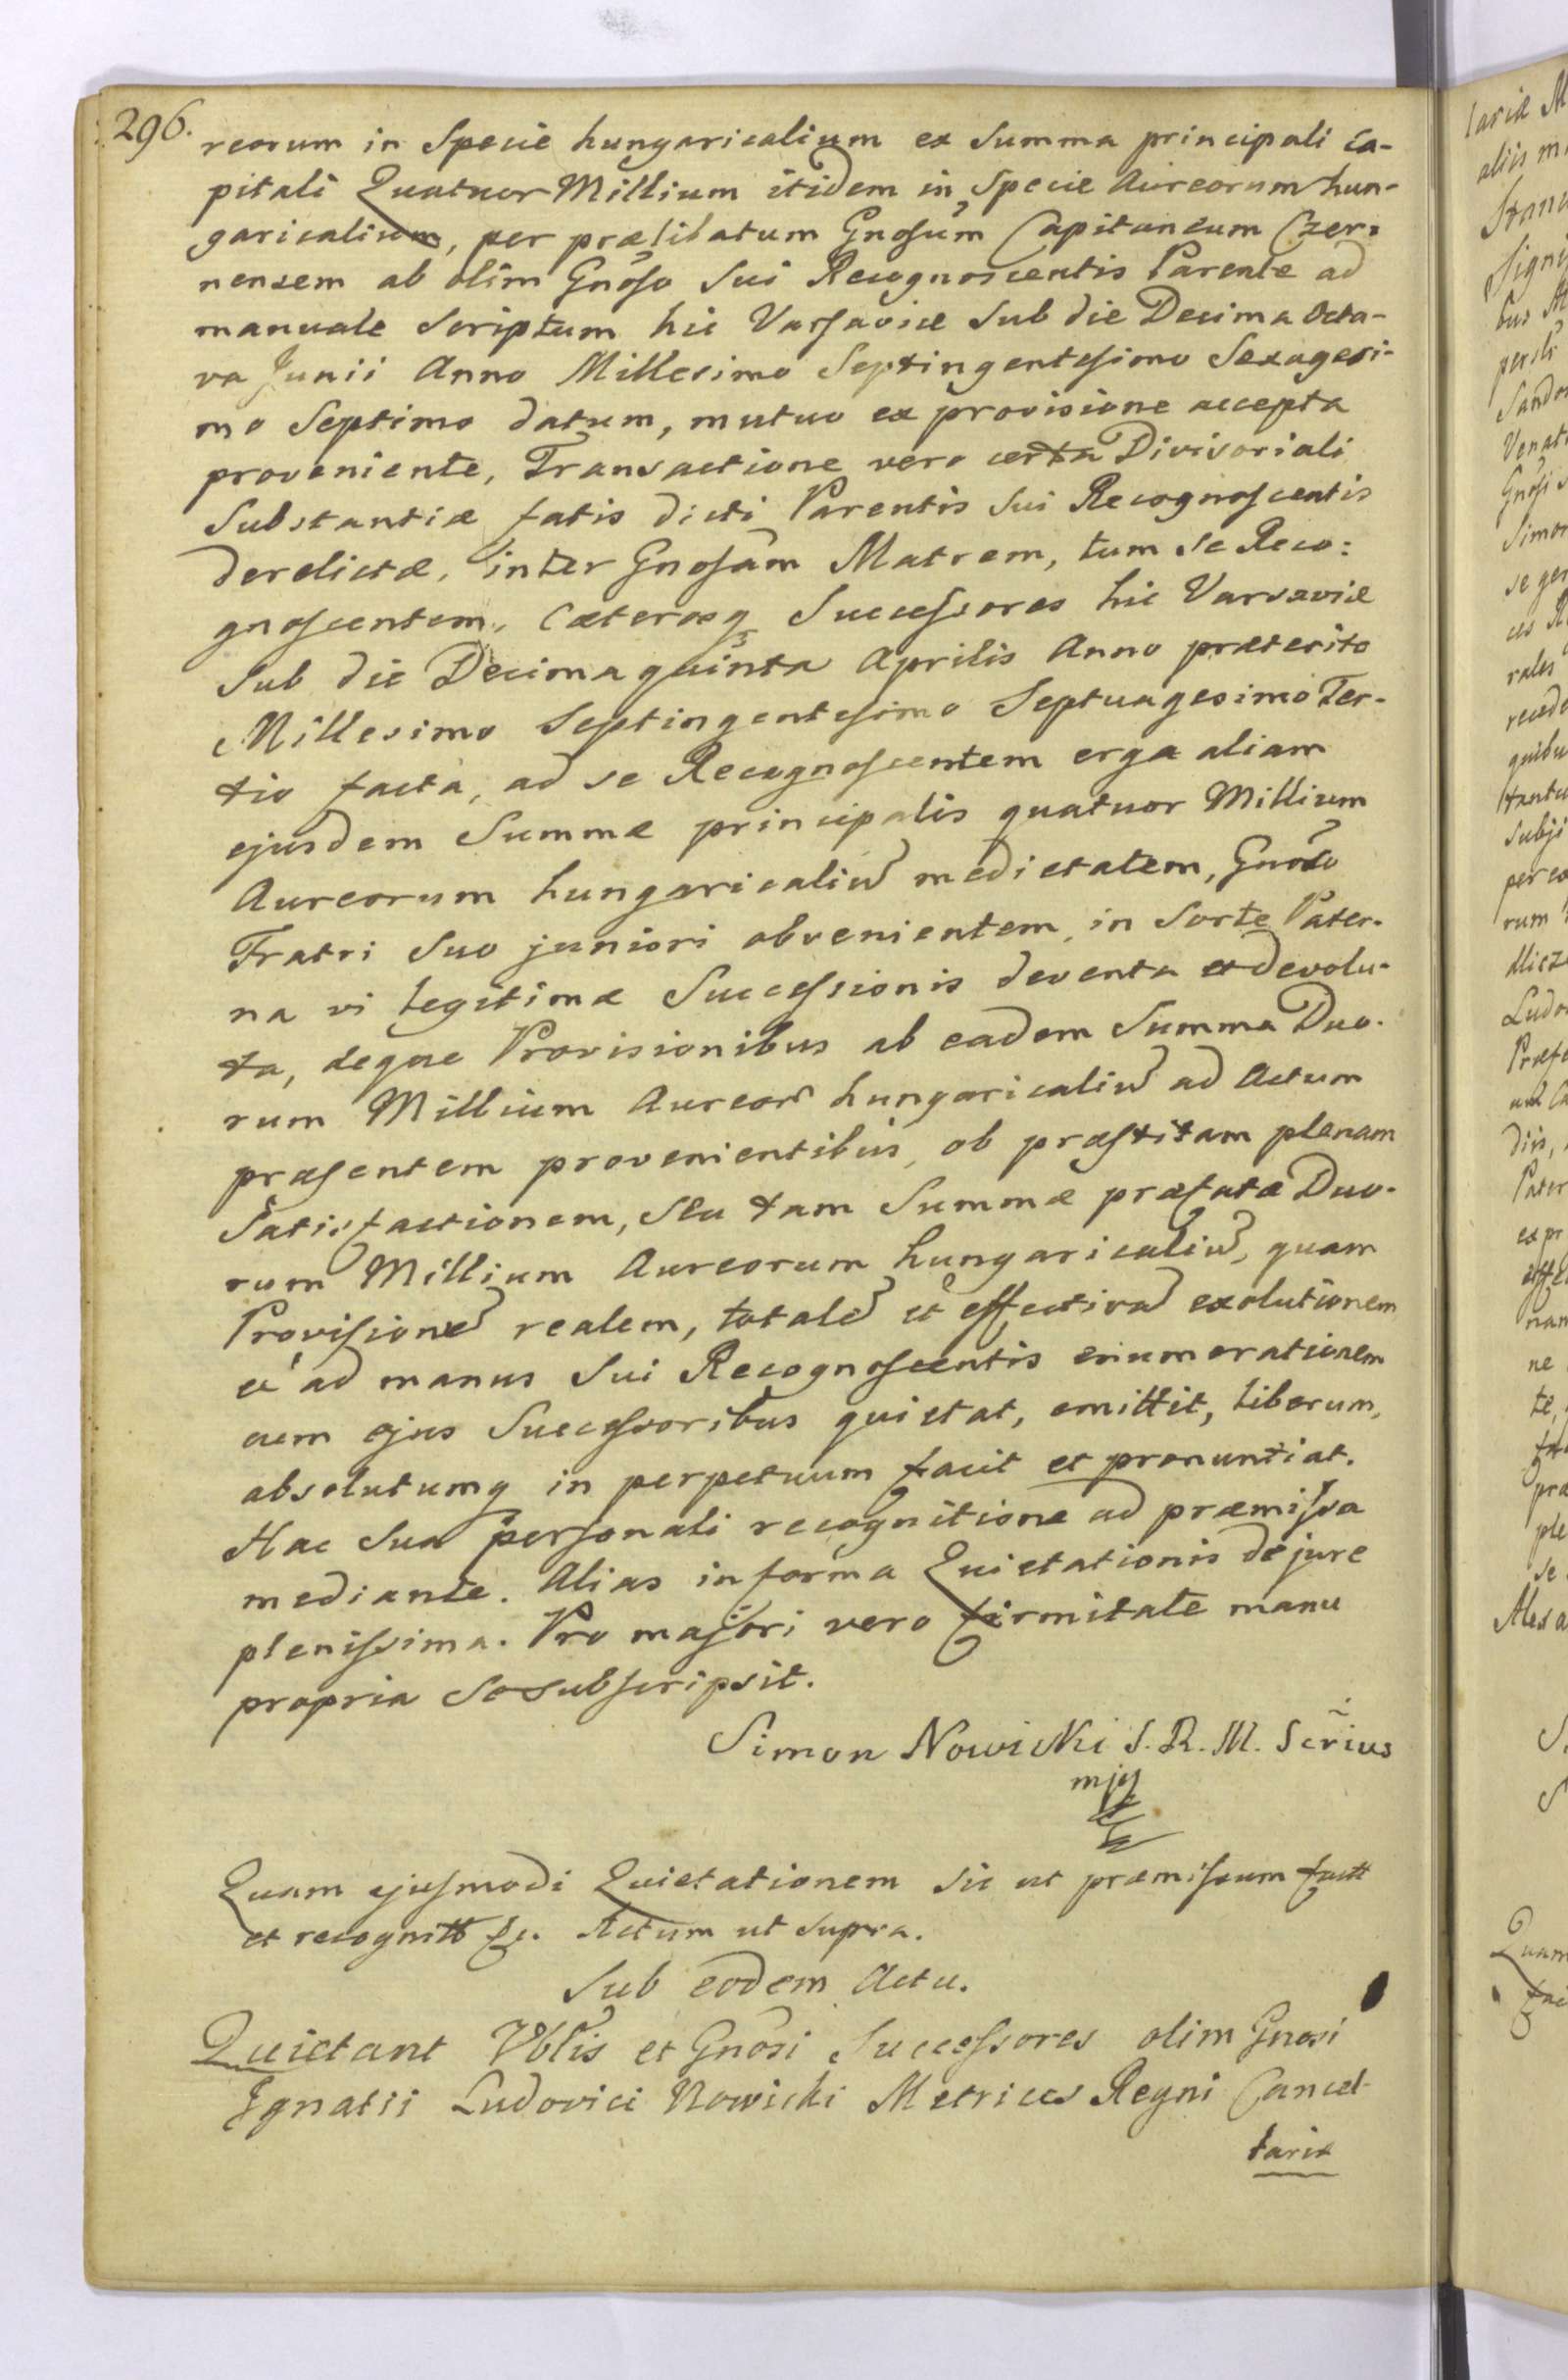 296.
reorum in Specie hungaricalium ex Summa principali Ca-
pitali Quatuor Millium itidem in Specie Aureorum hun-
garicalium, per prælibatum Gnosum Capitaneum Czer=
nensem ab olim Gnoso Sui Recognoscentis Parente ad
manuale Scriptum hic Varsaviæ Sub die Decima Octa-
va Junii Anno Millesimo Septingentesimo Sexagesi-
mo Septimo datum, mutuo ex provisione accepta
proveniente, Transactione vero certa Divisoriali
Substantiæ fatis dicti Parentis Sui Recognoscentis
derelictæ, inter Gnosam Matrem, tum se Reco=
gnoscentem, Cæterosq Successores hic Varsaviæ
Sub die Decima quinta Aprilis Anno præterito
Millesimo Septingentesimo Septuagesimo Ter-
tio facta, ad se Recognoscentem erga aliam
ejusdem Summæ principalis quatuor Millium
Aureorum hungaricaliu medietatem, Gnoso
Fratri Suo juniori obvenientem, in Sorte Pater-
na vi legitimæ Successionis deventa et devolu-
ta, deque Provisionibus ab eadem Summa Duo-
rum Millium Aureor hungaricaliu ad Actum
præsentem provenientibus, ob præstitam plenam
Satisfactionem, Seu tam Summæ præfatæ Duo-
rum Millium Aureorum hungaricaliu, quam
Provisione realem, totale et effectiva exolutionem
et ad manus Sui Recognoscentis enumerationem
eum ejus Successoribus quietat, emittit, liberum,
absolutumq in perpetuum facit et pronuntiat.
Hac Sua personali recognitione ad præmissa
mediante. Alias in forma Quietationis de jure
plenissima. Pro majori vero firmitate manu
propria Se subscripsit.
Simon Nowicki S. R. M. Scrius
mpp
Quam ejusmodi Quietationem sic ut præmissum factt
et recognitt &c. Actum ut Supra.
Sub eodem Actu.
Quietant Vbłis et Gnosi Successores olim Gnosi
Ignatii Ludovici Nowicki Metrices Regni Cancel-
lariæ